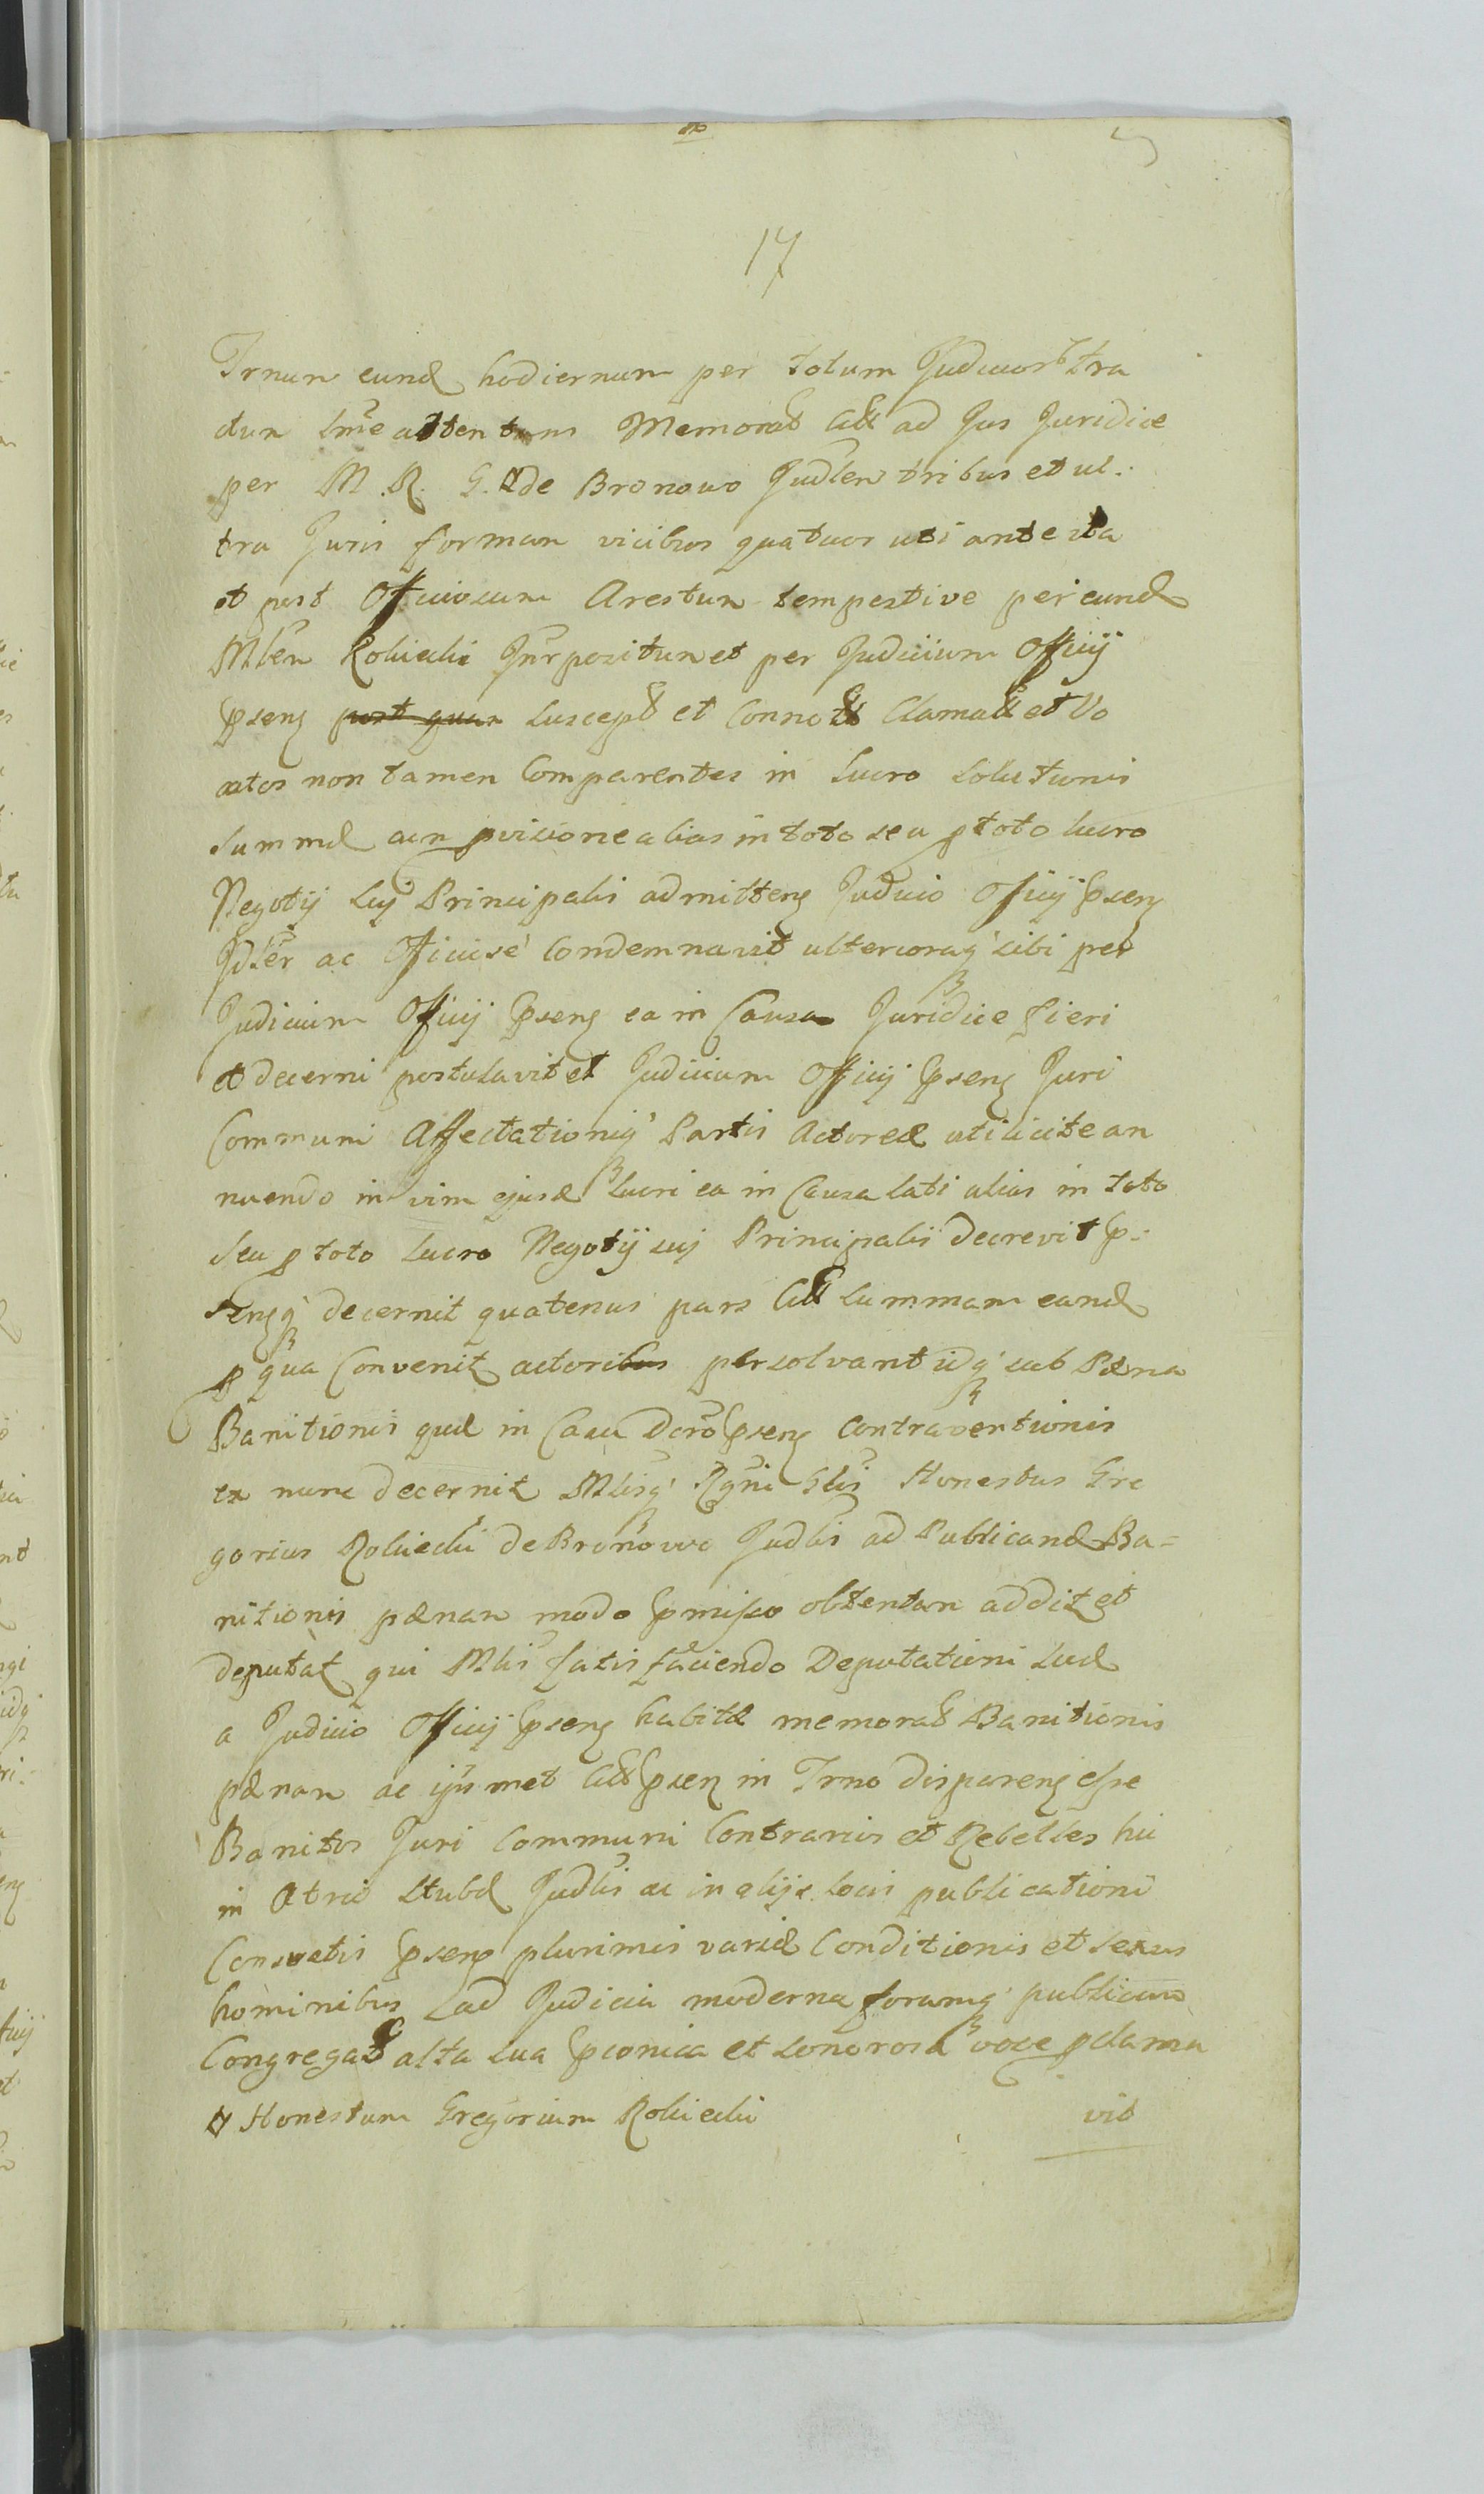 17
Trnum eund hodiernum per totum Judicior tra
ctum lme attentum Memorat Citt ad Jus Juridice
per M. R. G. de Bronowo Judlem tribus et ul:
tra Juris formam vicibus quatuor uti ante ita
et post Officiosum Arestum tempestive per eund
Mlem Rokicki Jnrpositum et per Judicium Officij
pseng post quam suscept et Conno Clamatt et Vo
catos non tamen Comparentes in lucro solutionis
summæ acn pvisione alias in toto seu p toto lucro
Negotij suj Principalis admitteng Judicio Officij pseng
Jdler ac Officiose Condemnavit ulterioraq sibi per
Judicium Officij pseng ea in Causa Juridice fieri
et decerni postulavit et Judicium Officij pseng Juri
Communi Affectationiq Partis Actoreæ uti licite an
nuendo in vim ejusd lucri ea in Causa lati alias in toto
seu p toto lucro Negotij suj Principalis decrevit p:
senq decernit quatenus pars Citt summam eand
p qua Convenit actoribus persolvant idq sub Pæna
Banitionis quæ in Casu Dcro pseng contraventionis
ex nunc decernit Mlisq Rgni Glis Honestus Gre
gorius Rokicki de Bronowo Judlis ad Publicand Ba=
nitionis pænam modo pmisso obtentam addit et
deputat qui Mlis satis faciendo Deputationi suæ
a Judicio Officij pseng habitæ memorat Banitionis
pænam ac ijsmet Citt pseng in Trno dispareng esse
Banitos Juri Communi Contrarios et Rebelles hic
in Atrio Stubæ Judlis ac in alijs locis publicationi
Consuetis pseng plurimis variæ Conditionis et sexus
hominibus ad Judicia moderna forumq publicum
Congregat alta sua pconica et sonorosa voce pclama
Honestum Gregorium Rokicki
vit